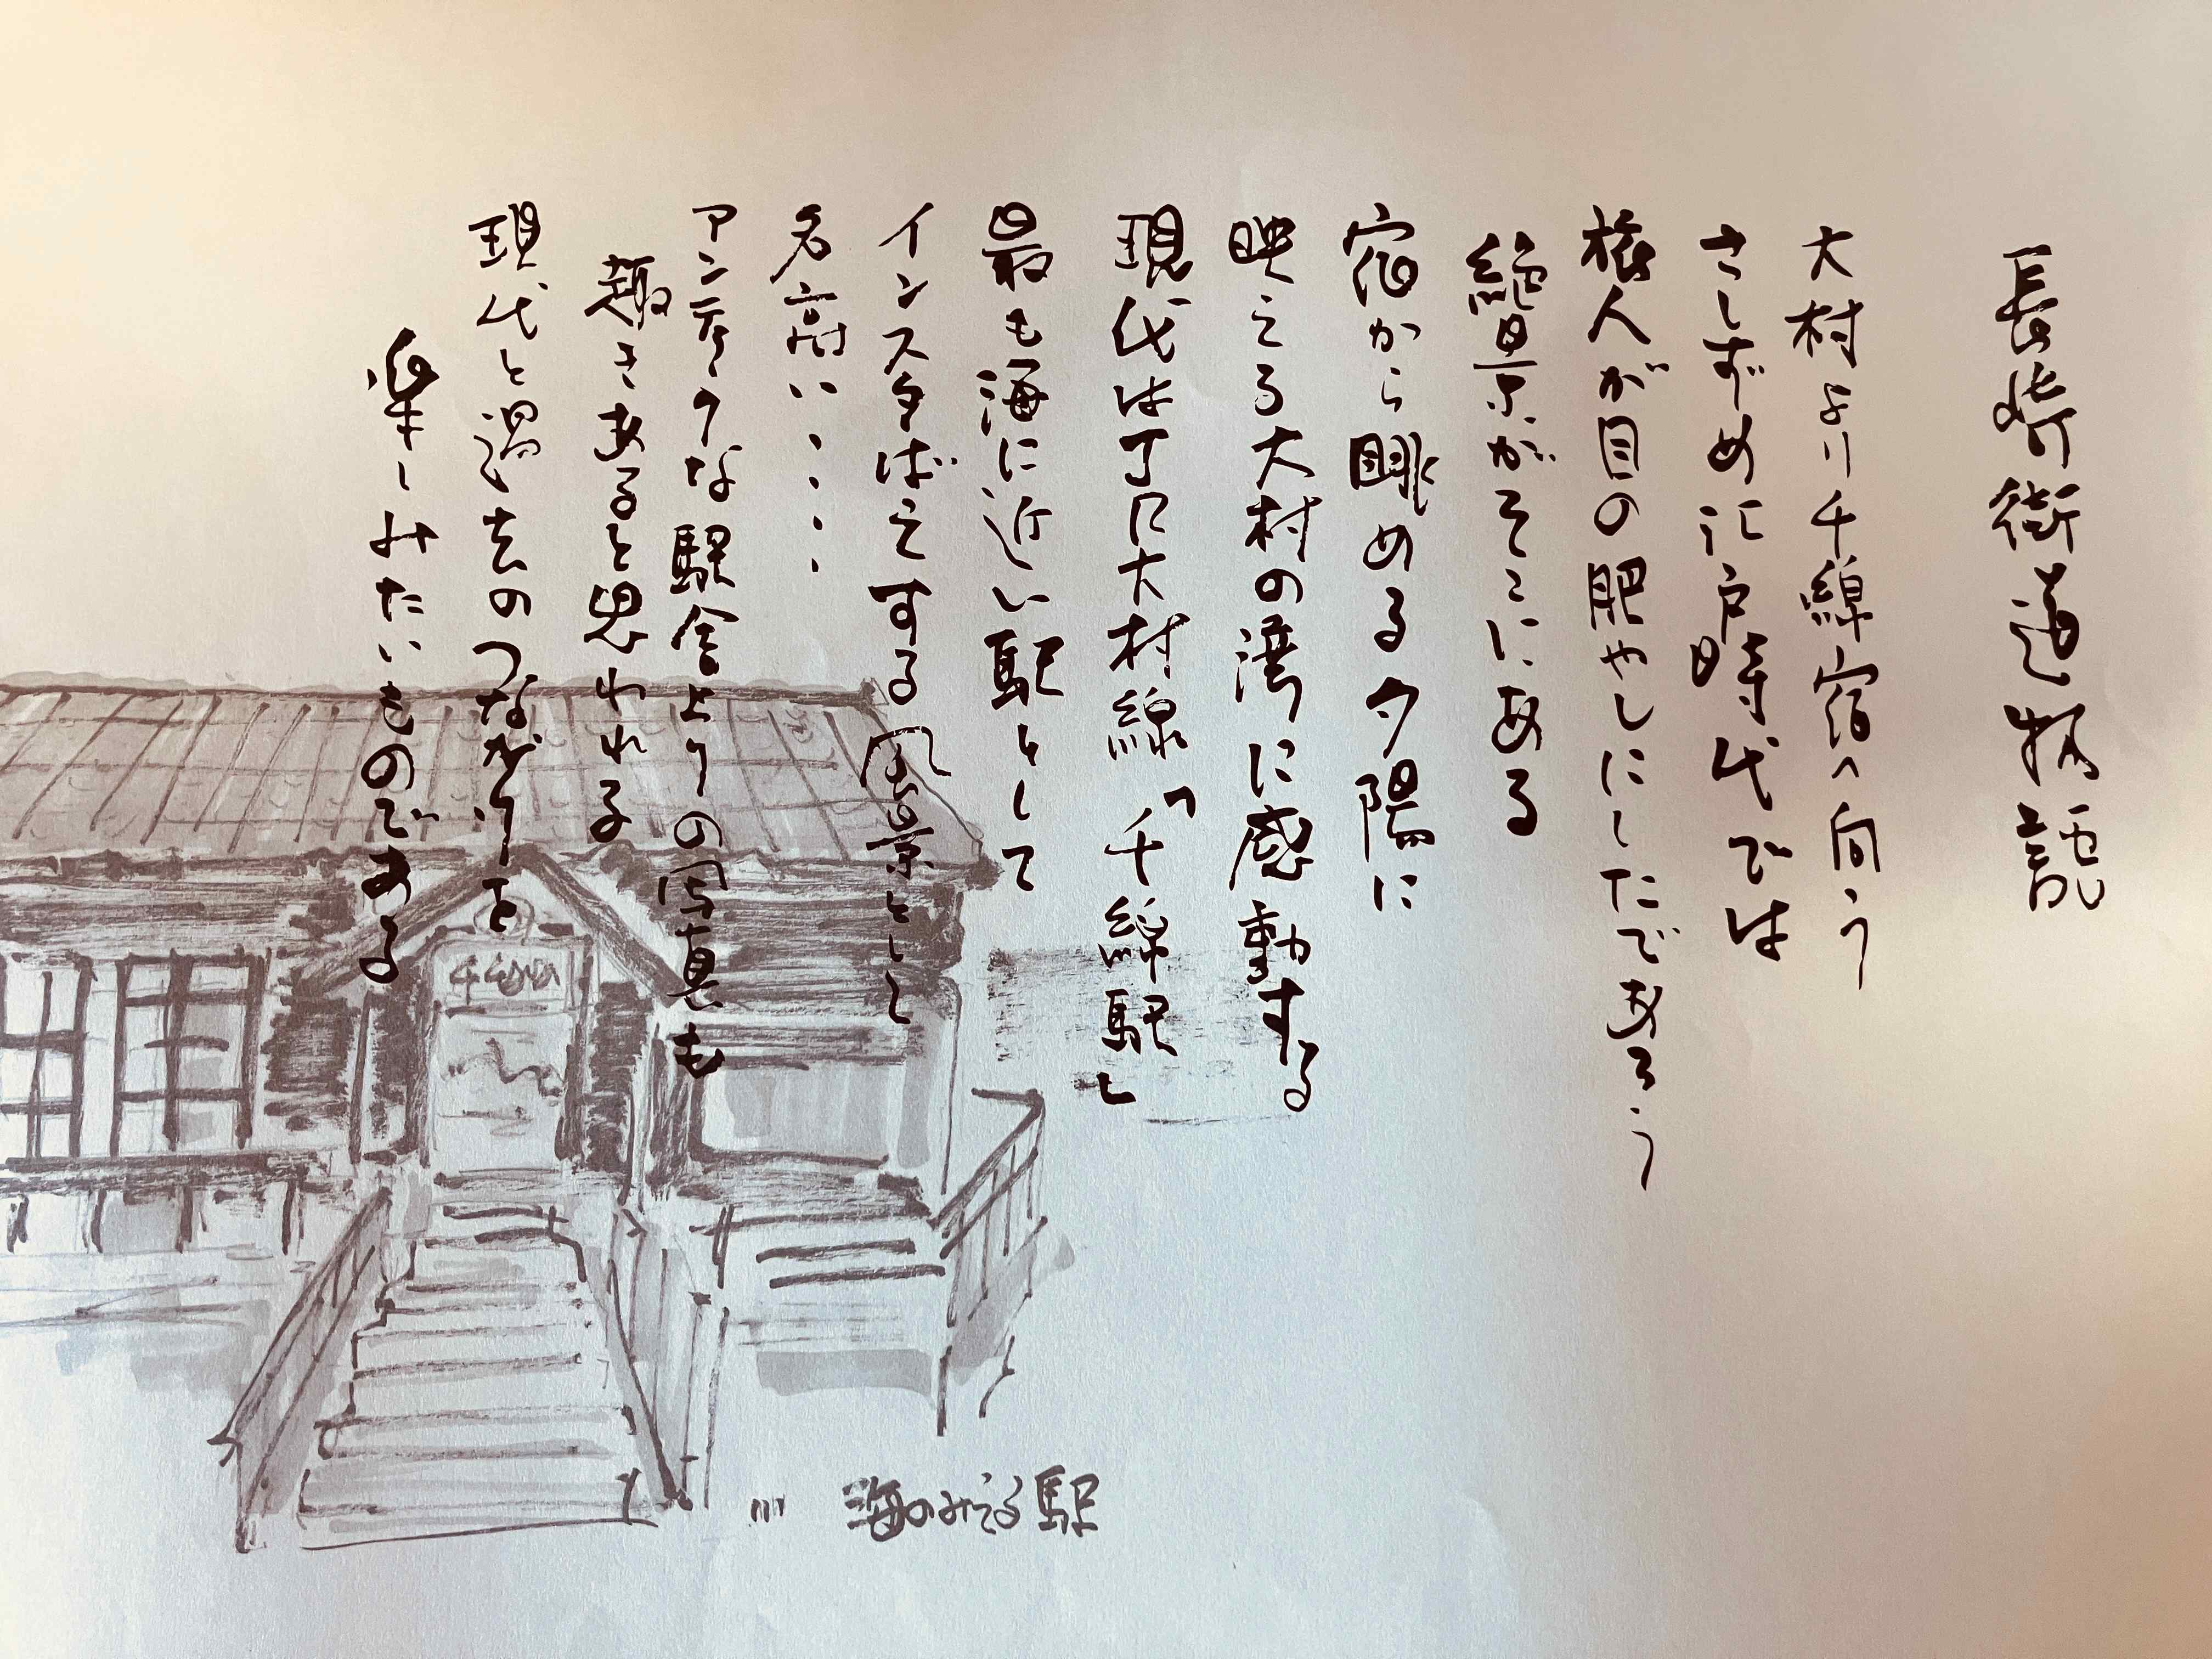 長崎街道物語
大村より千綿宿へ向う
さしずめ江戸時代では
旅人が目の肥やしにしたであろう
絶景がそこにある
宿から眺める夕陽に
映える大村の湾に感動する
現代はJR大村線「千綿駅」
最も海に近い駅として
インスタばえする風景として
名高い・・・・
アンティクな駅舎よりの写真も
趣きあると思われる
現代と過去のつながりを
楽しみたいものである
千綿駅
海のみえる駅